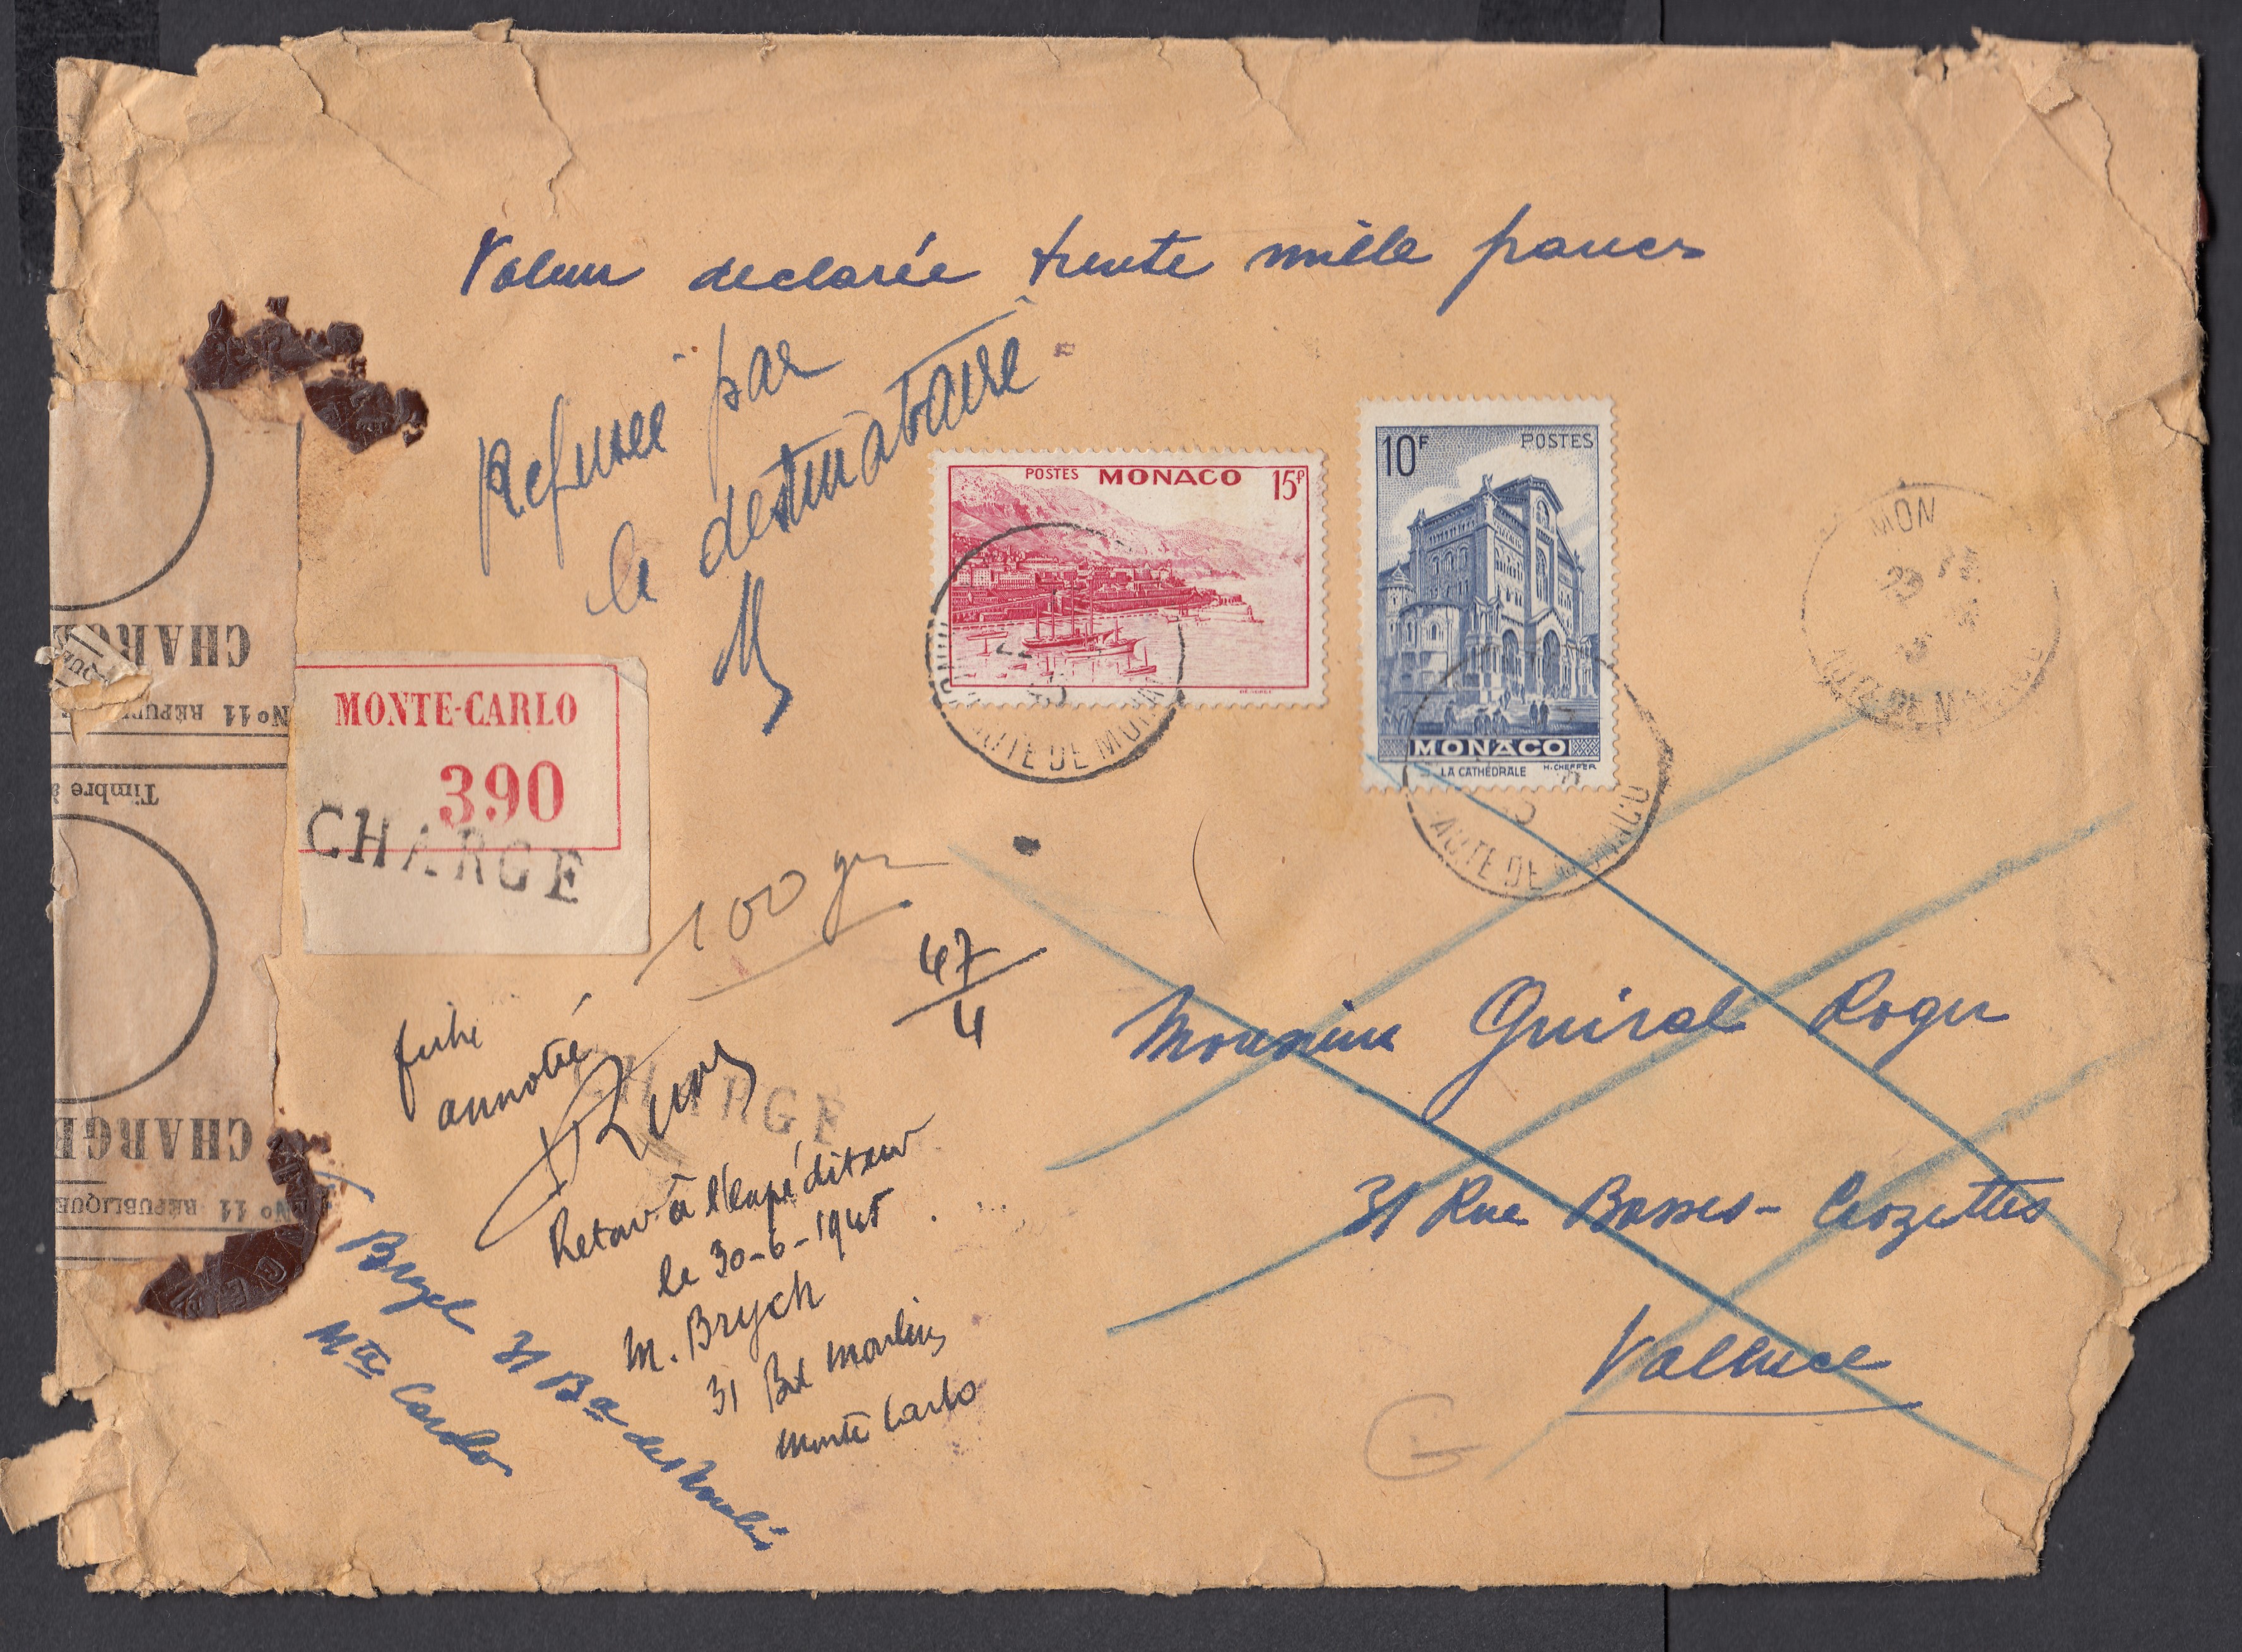 Valeur declarée trente mille francs
Refusée par
le destinataire
POSTES MONACO 15F
10F POSTES
MONACO
LA CATHÉDRALE H. CHEFFER
MON
CHARGE
No 11 RÉPU
Timbre à
CHARGE
No 11 RÉPUBLIQUE
MONTE-CARLO
390
CHARGE
100 gr
47
4
fiche
annotée
CHARGE
Retour à l'expéditeur
le 30-6-1945
M. Brych
31 Bd Moulins
Monte Carlo
31 Bd des Moulins
Mte Carlo
Monsieur Guiral Roger
31 Rue Basses-Crozettes
Valence
G